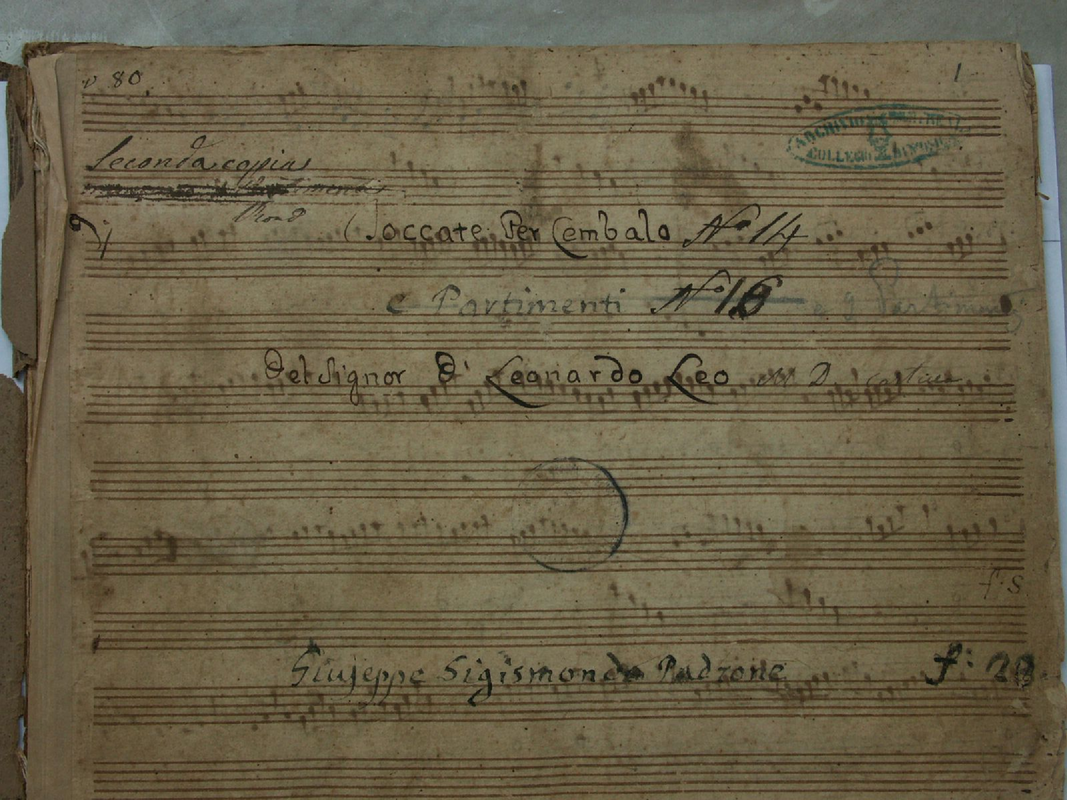 80 1
ARCHIVIO DEL REAL
COLLEGIO DI MUSICA
Seconda copia
Toccate Per Cembalo No 14
e Partimenti No 16 e 9 Partimenti
Del Signor D. Leonardo Leo
f. S
Giuseppe Sigismondo Padrone f: 28